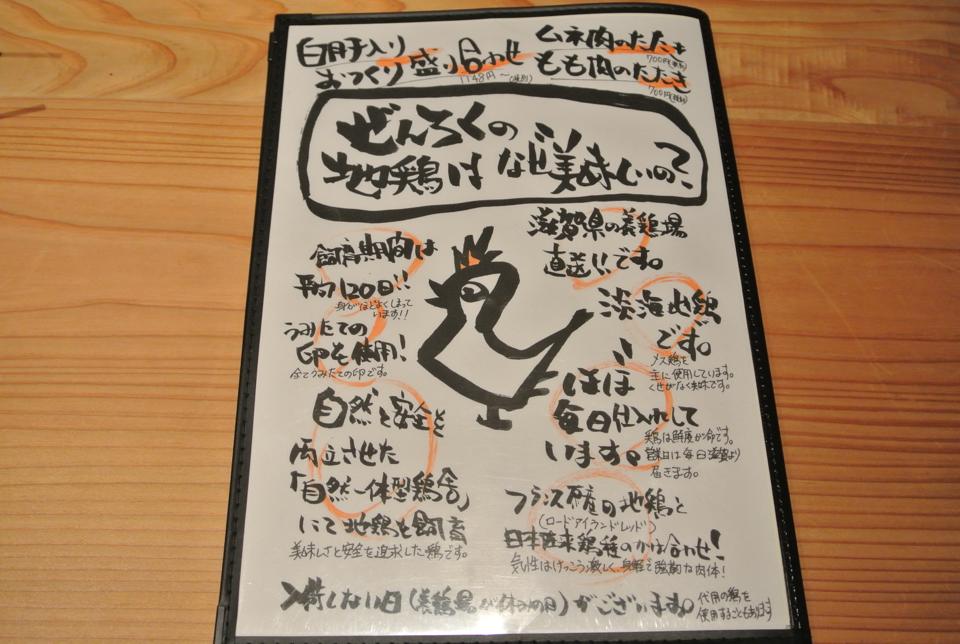 白肝入り
おつくり盛り合わせ
1148円〜(税別)
ムネ肉のたたき
700円(税別)
もも肉のたたき
700円(税別)
ぜんろくの
地鶏はなぜ美味しいの?
滋賀県の養鶏場
直送!!です。
淡海地鶏
です。
メス鶏を
主に使用しています。
くせがなく美味です。
ほぼ
毎日仕入れて
います。
鶏は鮮度が命です。
営業日は毎日滋賀より
届きます。
フランス原産の地鶏と
(ロードアイランドレッド)
日本在来鶏種のかけ合わせ!
気性はけっこう激しく、身軽で強靭な肉体!
飼育期間は
平均120日!!
身がほどよくしまって
います!!
うみたての
卵を使用!
全てうみたての卵です。
自然と安全を
両立させた
「自然一体型鶏舎」
にて地鶏を飼育
美味しさと安全を追求した鶏です。
入荷しない日(養鶏場が休みの日)がございます。
代用の鶏を
使用することもあります